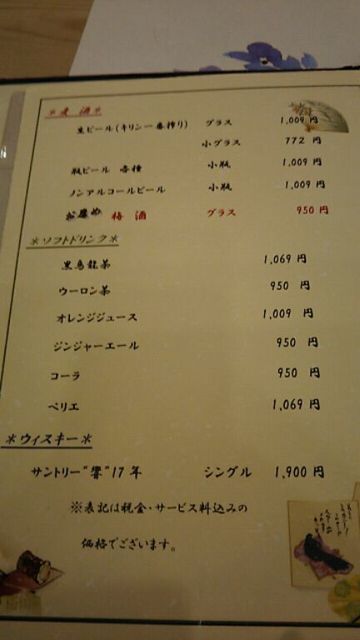 ＊麦 酒＊
生ビール(キリン一番搾り) グラス 1,009 円
小グラス 772 円
瓶ビール 各種 小瓶 1,009 円
ノンアルコールビール 小瓶 1,009 円
お薦め 梅 酒 グラス 950 円
＊ソフトドリンク＊
黒烏龍茶 1,069 円
ウーロン茶 950 円
オレンジジュース 1,009 円
ジンジャーエール 950 円
コーラ 950 円
ペリエ 1,069 円
＊ウィスキー＊
サントリー"響"17年 シングル 1,900 円
※表記は税金・サービス料込みの
価格でございます。